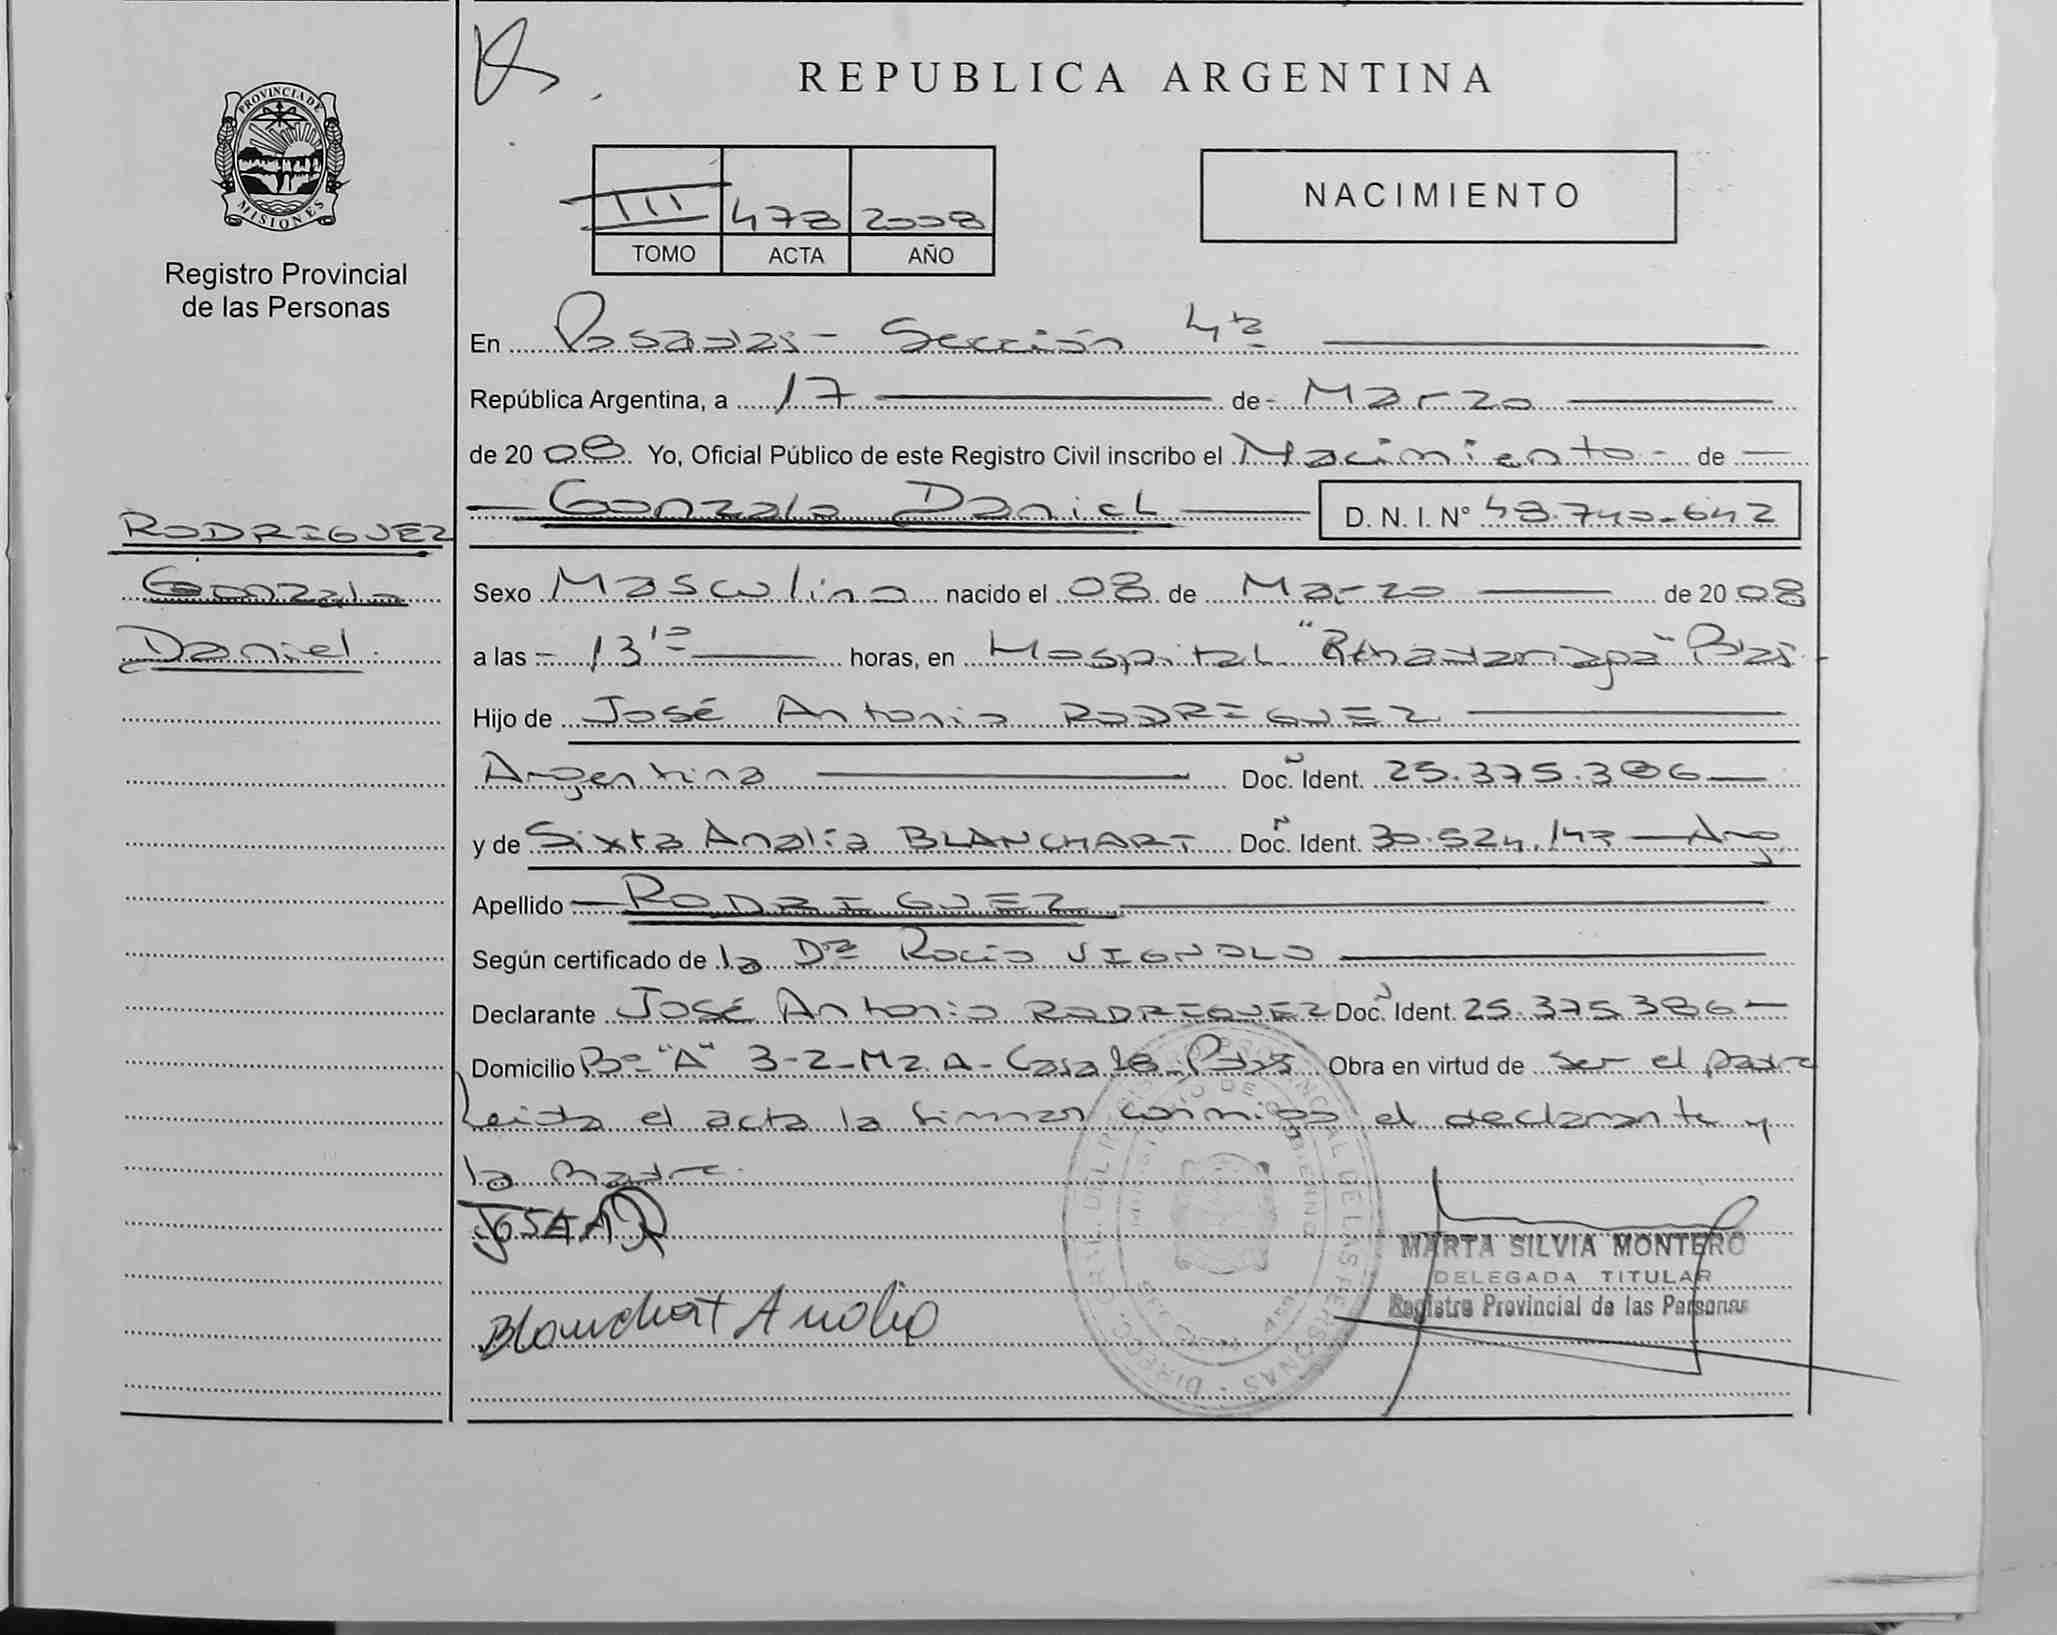 REPUBLICA ARGENTINA
PROVINCIA DE
MISIONES
Registro Provincial
de las Personas
NACIMIENTO
III 478 2008
TOMO ACTA AÑO
En Posadas - Sección 4ta
República Argentina, a 17 de Marzo
de 2008 Yo, Oficial Público de este Registro Civil inscribo el Nacimiento de
Gonzalo Daniel D. N. I. N° 48.740.642
RODRIGUEZ
Gonzalo
Daniel
Sexo Masculino nacido el 08 de Marzo de 2008
a las 13 horas, en Hospital
Hijo de José Antonio RODRIGUEZ
Argentina Doc. Ident. 25.375.386
y de Sixta Analía BLANCHART Doc. Ident. 30.524.147 Arg.
Apellido RODRIGUEZ
Según certificado de la Dra Rocío VIGNOLO
Declarante José Antonio RODRIGUEZ Doc. Ident. 25.375.386
Domicilio Bo "A" 3-2-Mz A- Casa Obra en virtud de ser el padre
Leida el acta la firman conmigo el declarante y
la madre.
JOSE A R
Blanchart Analia
MARTA SILVIA MONTERO
DELEGADA TITULAR
Registro Provincial de las Personas